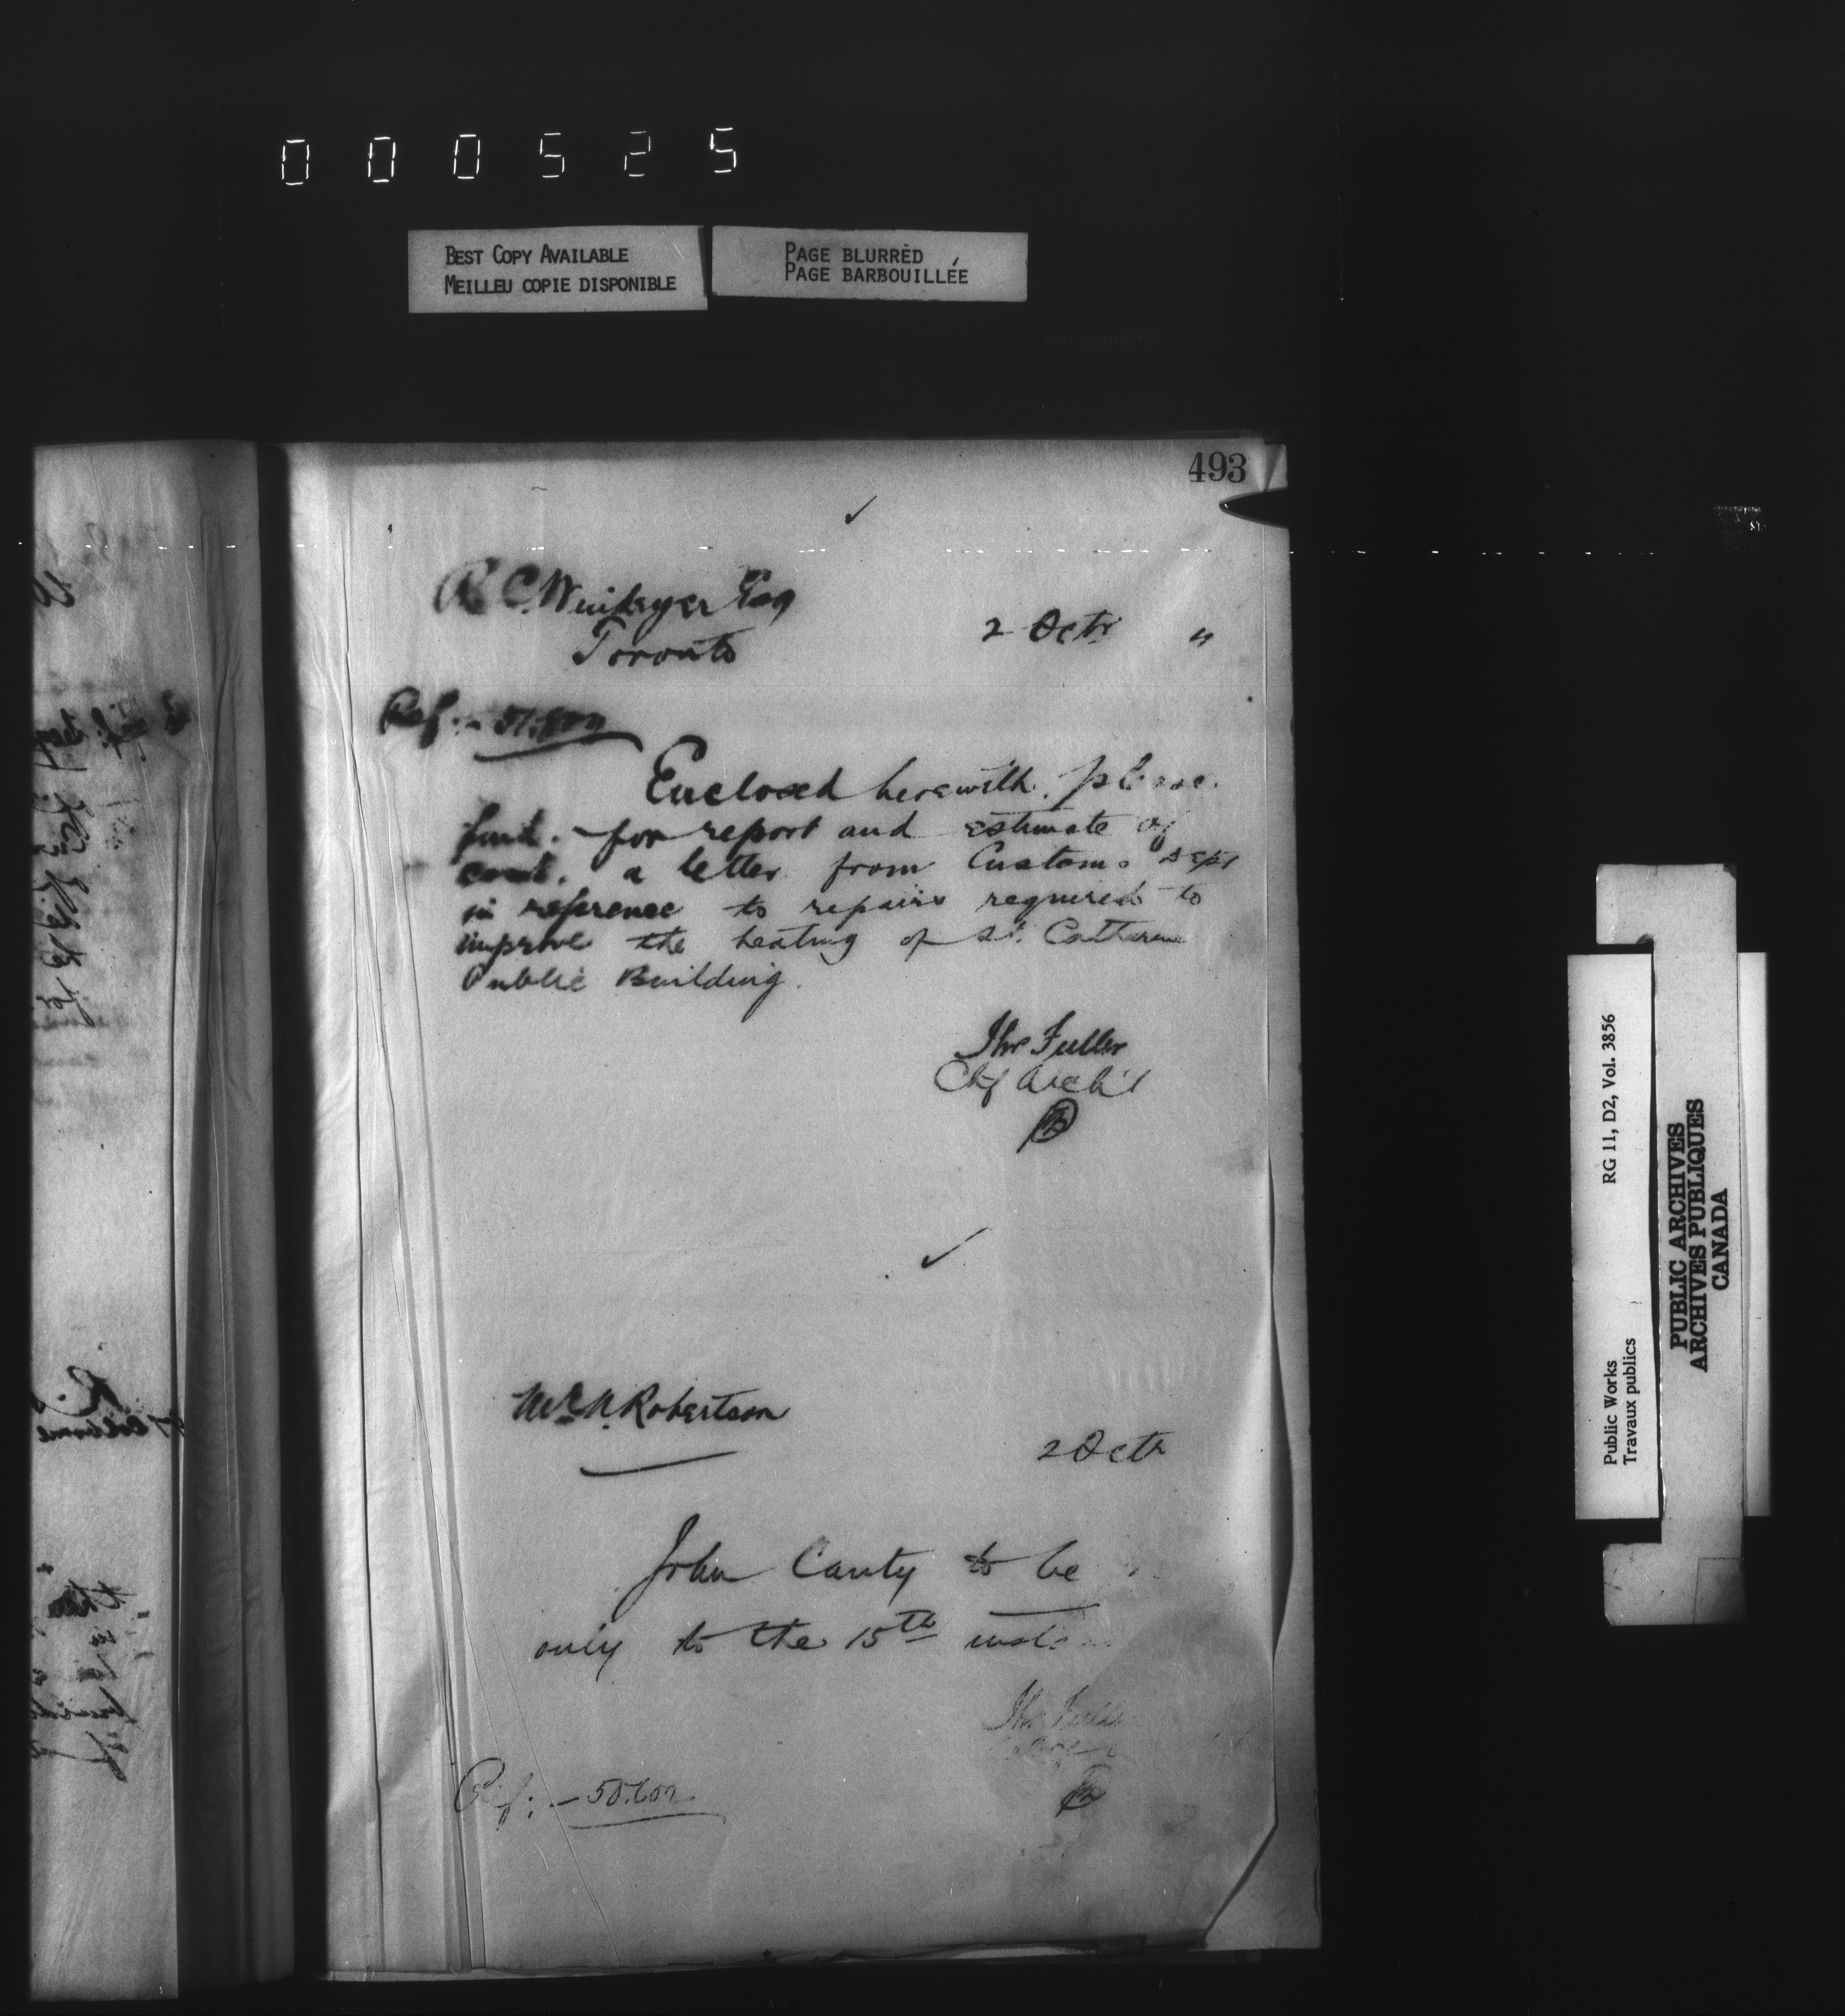 000525
BEST COPY AVAILABLE
MEILLEU COPIE DISPONIBLE
PAGE BLURRÈD
PAGE BARBOUILLÉE
493
R. C. Windeyer Esq
Toronto
2 Octr "
Ref:-
Enclosed herewith. please
find. - for report and estimate of
cost. a letter from Customs Dept
in reference to repairs required to
improve the heating of St. Catherine
Public Building.
Thos Fuller
Chf Arch't
Mr. N. Robertson
2 Octr
John Canty to be
only to the 15th inst.
Thos Fuller
Ref:-
Public Works
Travaux publics
RG 11, D2, Vol. 3856
PUBLIC ARCHIVES
ARCHIVES PUBLIQUES
CANADA